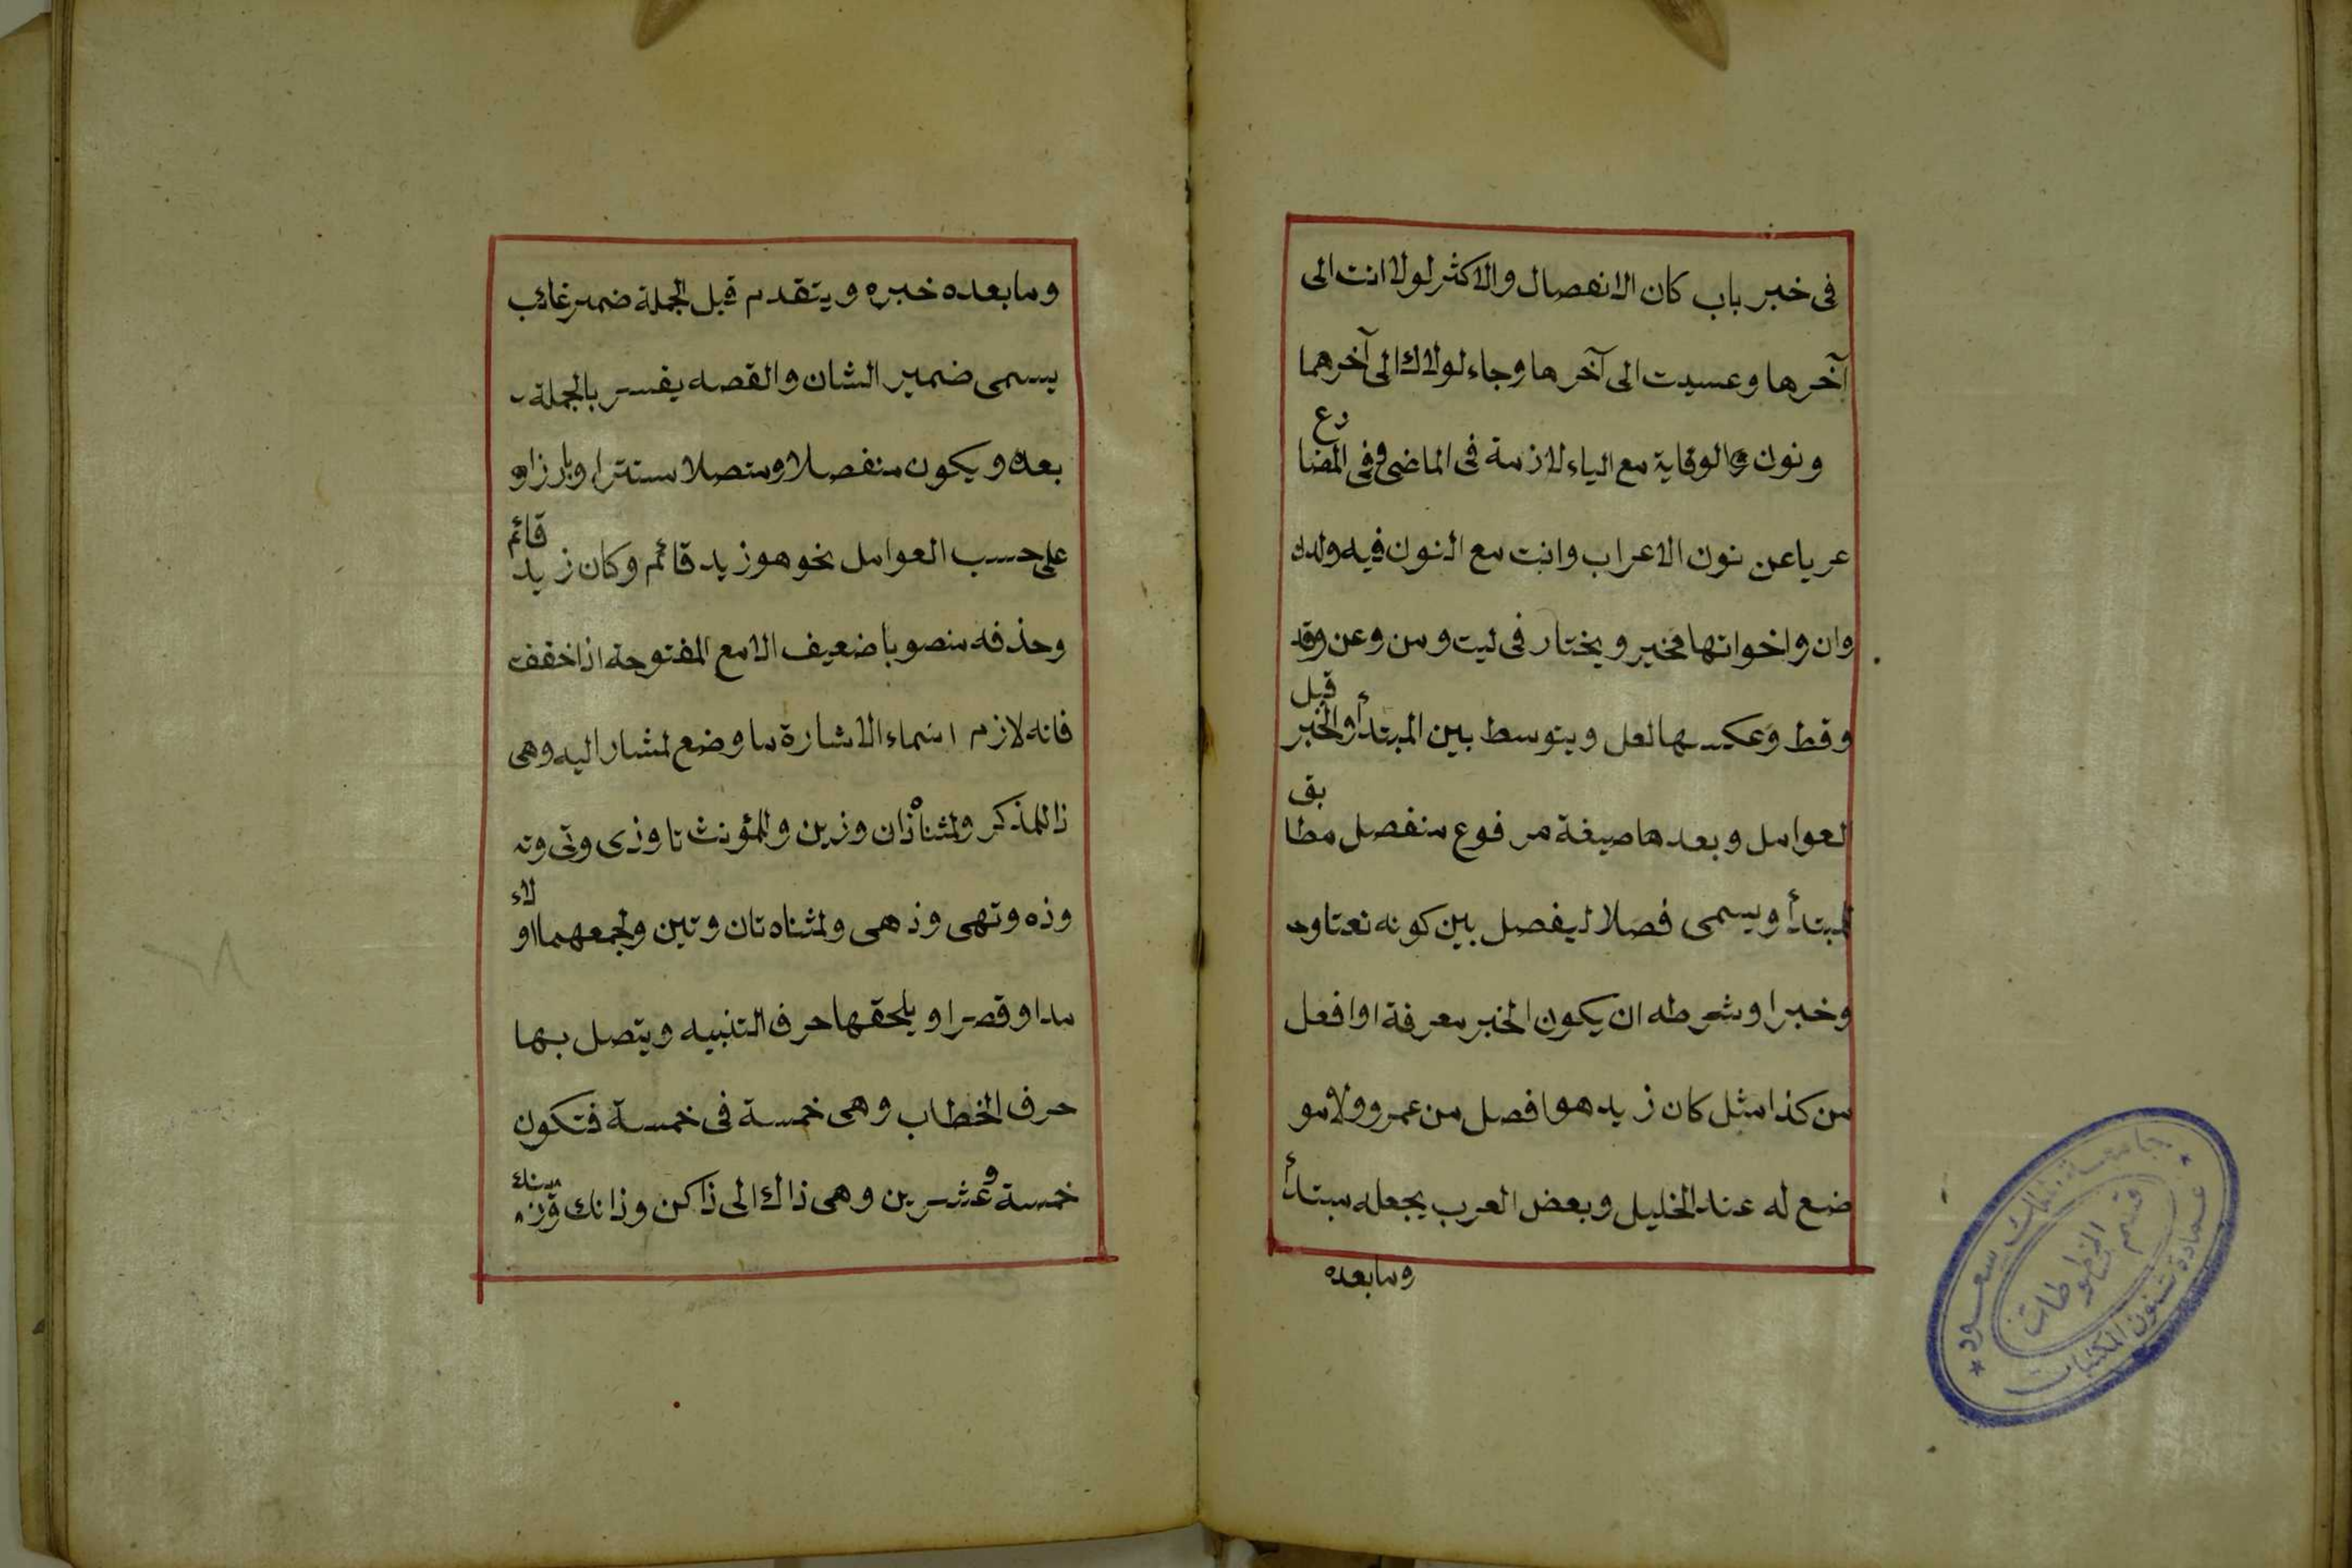 فى خبر باب كان الانفصال والاكثر لولا انت الى
آخرها وعسيت الى آخرها وجاء لولاك الى آخرهما
ونون الوقاية مع الياء لازمة فى الماضى وفى المضارع
عريا عن نون الاعراب وانت مع النون فيه ولدن
وان واخواتها مخير ويختار فى ليت ومن وعن وقد
وقط وعكسها لعل ويتوسط بين المبتدأ والخبر قبل
العوامل وبعدها صيغة مرفوع منفصل مطابق
للمبتدأ ويسمى فصلا ليفصل بين كونه نعتا و
وخبرا وشرطه ان يكون الخبر معرفة او افعل
من كذا مثل كان زيد هو افضل من عمرو ولا مو
ضع له عند الخليل وبعض العرب يجعله مبتدأ
وما بعده
وما بعده خبره ويتقدم قبل الجملة ضمير غائب
يسمى ضمير الشان والقصه يفسر بالجملة
بعده ويكون منفصلا ومتصلا مستترا وبارزا و
على حسب العوامل نحو هو زيد قائم وكان زيد قائم
وحذفه منصوبا ضعيف الا مع المفتوحة اذا خففت
فانه لازم اسماء الاشارة ما وضع لمشار اليه وهى
ذا للمذكر ولمثناه ذان وذين وللمؤنث تا وذى وتى وته
وذه وتهى وذهى ولمثناه تان وتين ولجمعهما اولاء
مدا وقصرا ويلحقها حرف التنبيه ويتصل بها
حرف الخطاب وهى خمسة فى خمسة فتكون
خمسة وعشرين وهى ذاك الى ذاكن وذانك
جامعة الملك سعود
عمادة شئون المكتبات
قسم المخطوطات